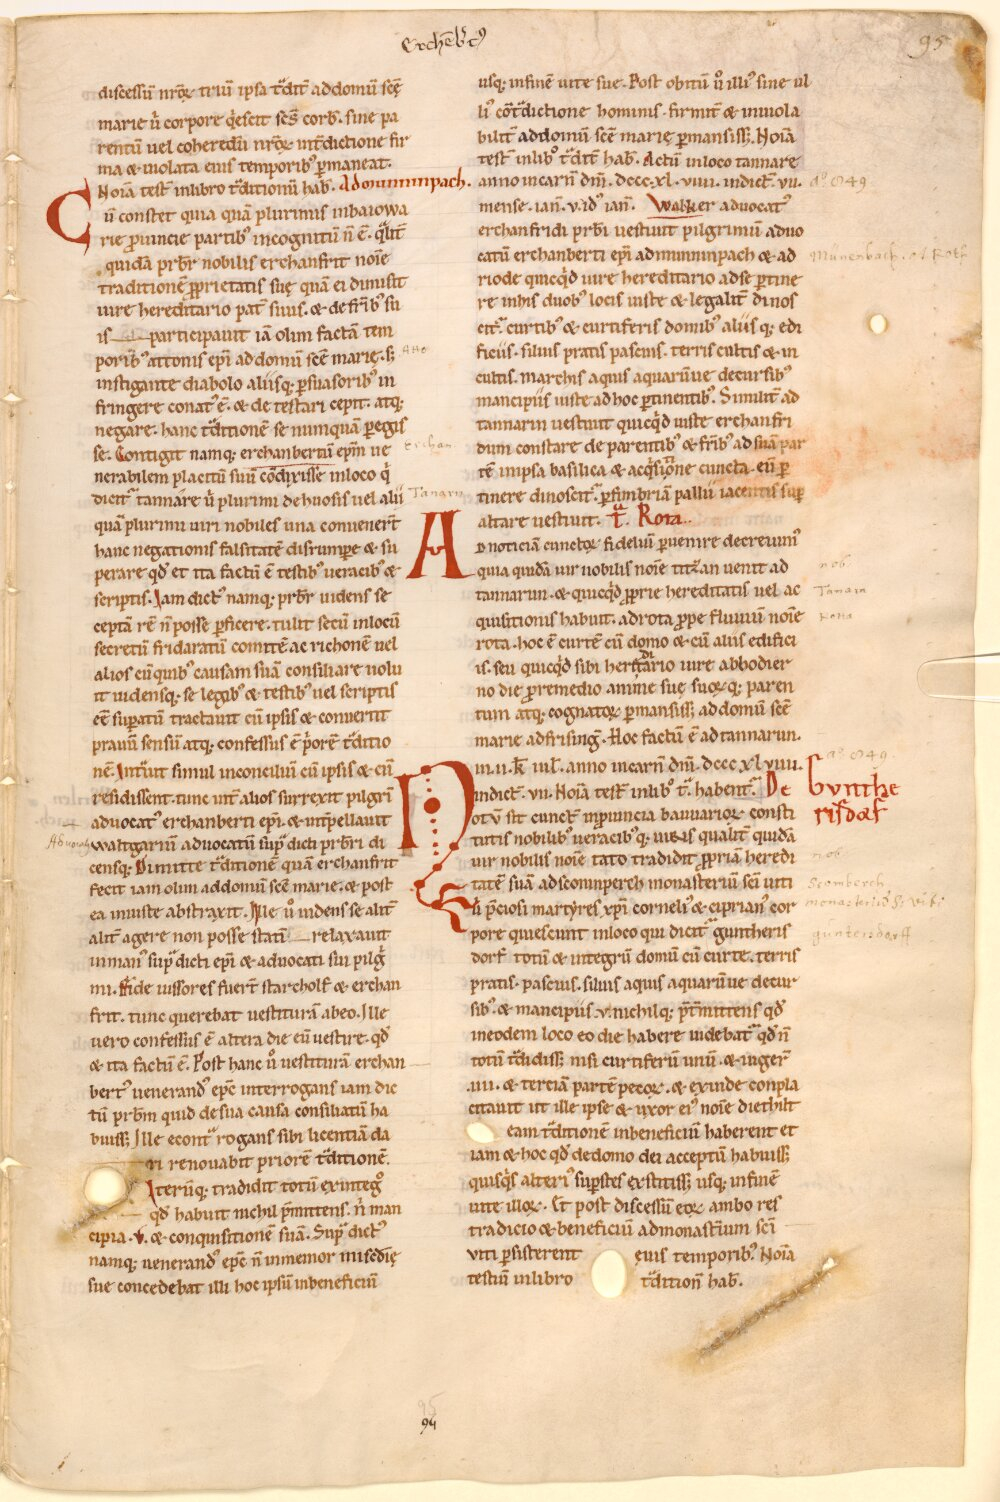 Erchēb̄t᷒
95
discessū nr̄oꝝ triū ipsa t̄dit̄ ad domū scę̄
marie ū corpore q̇escit sc̄s corb̄. sine pa
rentū uel coheredū nr̄oꝝ int̄dictione fir
ma ⁊ inuiolata eius temporib᷒ ꝑmaneat.
Noīa test̄ in libro t̄ditionū hab̄. Ad oniminpach.
Cū constet quia quā plurimis in baiowa
rie ꝓuincie partib᷒ incognitū n̄ ē. q̄lit̄
quidā prb̄r nobilis erchanfrit noīe
traditionē ꝓprietatis suę quā ei dimisit
iure hereditario pat̄ suus. ⁊ de frīb᷒ su
is participauit iā olim factā tem
porib᷒ attonis ep̄i ad domū scē marię. s;
instigante diabolo aliisq; ꝑsuasorib᷒ in
fringere conat᷒ ē. ⁊ detestari cepit. atq;
negare. hanc t̄ditionē se numquā ꝑegis
se. Contigit namq; erchanbertū ep̄m ue
nerabilem placitū suū condixisse in loco q̇
dicit̄ tannare ū plurimi de huosis uel alii
quā plurimi uiri nobiles una conuenert̄
hanc negationis falsitatē disrumpe ⁊ su
perare qd̄ et ita factū ē testib᷒ ueracib᷒ ⁊
scriptis. Iam dict᷒ namq; prb̄r uidens se
ceptā rē n̄ posse ꝑficere. tulit secū in locū
secretū fridaratū comitē ac richonē uel
alios cū quib᷒ causam suā consiliare uolu
it uidensq; se legib᷒ ⁊ testib᷒ uel scriptis
eē suꝑatū tractauit cū ipsis ⁊ conuertit
prauū sensū atq; confessus ē p̄orē t̄ditio
nē. Int̄uit simul in conciliū cū ipsis ⁊ cū
resedissent. tunc int̄ alios surrexit pilgrī
aduocat᷒ erchanberti ep̄i. ⁊ int̄pellauit
waltgariū aduocatū sup̄ dicti prb̄ri di
censq; Dimitte t̄ditionē quā erchanfrit
fecit iam olim ad domū scē marie. ⁊ post
ea iniuste abstraxit. Ille ū uidens se alit̄
alit̄ agere non posse statī relaxauit
in man᷒ sup̄ dicti ep̄i ⁊ aduocati sui pilg̊
mi. Fide iussores fuert̄ starcholf ⁊ erchan
frit. tunc querebat uestiturā ab eo. Ille
uero confessus ē altera die eū uestire. qd̄
⁊ ita factū ē. Post hanc ū uestiturā erchan
bert᷒ uenerand᷒ ep̄c interrogans iam dic
tū prb̄m quid de sua causa consiliatū ha
buiss; Ille econt̄ rogans sibi licentiā da
ri renouabit priorē t̄ditionē.
Iterūq; tradidit totū ex integ̊
qd̄ habuit nichil p̄mittens. n̄ man
cipia. v. ⁊ conquisitionē suā. Sup̄ dict᷒
namq; uenerand᷒ ep̄c n̄ inmemor mise̅dię
sue concedebat illi hoc ipsū in beneficiū
usq; in finē uite sue. Post obitū ū illi᷒ sine ul
li᷒ cōt̄dictione hominis. firmit̄ ⁊ inuiola
bilit̄ ad domū scē marię ꝑmansiss;. Noīa
test̄ in lib᷒ t̄dit̄ hab̄. Actū in loco tannare
anno incarn̄ dn̄i. dccc.xl.viiii. indict̄. vii.
mense. ian̄. v. id᷒ ian̄. Walker aduocat᷒
erchanfridi prb̄i uestiuit pilgrimū aduo
catū erchanberti ep̄i ad muninpach ⁊ ad
riode quicq̇d iure hereditario ad se ꝑtine
re in his duob᷒ locis iuste ⁊ legalit̄ dinos
cit̄. curtib᷒ ⁊ curtiferis domib᷒ aliisq; edi
ficiis. siluis pratis pascuis. terris cultis ⁊ in
cultis. marchis aquis aquarūue decursib᷒
mancipiis iuste ad hoc ꝑtinentib᷒. Similit̄ ad
tannarin uestiuit quicq̇d iuste erchanfri
dum constare de parentib᷒ ⁊ frīb᷒ ad suā par
tē in ipsa basilica ⁊ acq̇sitione cuncta. eū ꝑ
tinere dinoscit̄. ꝑ fimbriā pallii iacentis sup
altare uestiuit. T̄. Rota.
Ad noticiā cunctoꝝ fideliū ꝑuenire decreuim᷒
quia quidā uir nobilis noīe titzan uenit ad
tannarun. ⁊ quicq̇d ꝓprie hereditatis uel ac
quisitionis habuit. ad rota ꝓpe fluuiū noīe
rota. hoc ē curtē cū domo ⁊ cū aliis edifici
is. seu quicq̇d sibi hereditario iure ab hodier
no die ꝓ remedio anime suę suoꝝq; paren
tum atq; cognatoꝝ ꝑmansiss; ad domū scē
marie ad frising̅. Hoc factū ē ad tannarun.
in. ii. k̄ iul̄. anno incarn̄ dn̄i. dccc xl viiii.
indict̄. vii. Noīa test̄ in lib᷒ t̄. habent̄. De Gunthe
risdorf
Notū sit cunct̄ in ꝓuincia bauuarioꝝ consti
tutis nobilib᷒ ueracib᷒q; uiris qualit̄ quidā
uir nobilis noīe tato tradidit ꝓpriā heredi
tatē suā ad sconinperch monasteriū scī uiti
ū p̄ciosi martyres xp̄i corneli᷒ ⁊ ciprian᷒ cor
pore quiescunt in loco qui dicit̄ guntheris
dorf totū ⁊ integrū domū cū curte. terris
pratis. pascuis. siluis aquis aquarūue decur
sib᷒. ⁊ mancipiis. v. nichilq; p̄t̄mittens qd̄
in eodem loco eo die habere uidebat̄ qd̄ n̄
totū t̄didiss; nisi curtiferū unū. ⁊ iuger̄
.iiii. ⁊ terciā partē pecoꝝ. ⁊ exinde conpla
citauit ut ille ipse ⁊ uxor ei᷒ noīe diethilt
eam t̄ditionē in beneficiū haberent et
iam ⁊ hoc qd̄ de domo dei acceptū habuiss;
quisq̇s alteri᷒ suꝑstes exstitiss; usq; in finē
uite illoꝝ. Et post discessū eoꝝ ambo res
tradicio ⁊ beneficiū ad monast̄ium scī
viti ꝑsisterent eius temporib᷒. Noīa
testiū in libro t̄dition̄ hab̄.
Atto
erchan
Tanarn
Aduocat᷒
aᵒ 849.
Munenbach. et Rott
nob.
Tanarn
Rotta
aᵒ 849.
nob.
Scomberch
monasteriū S. Viti
guntersdorff
95
94